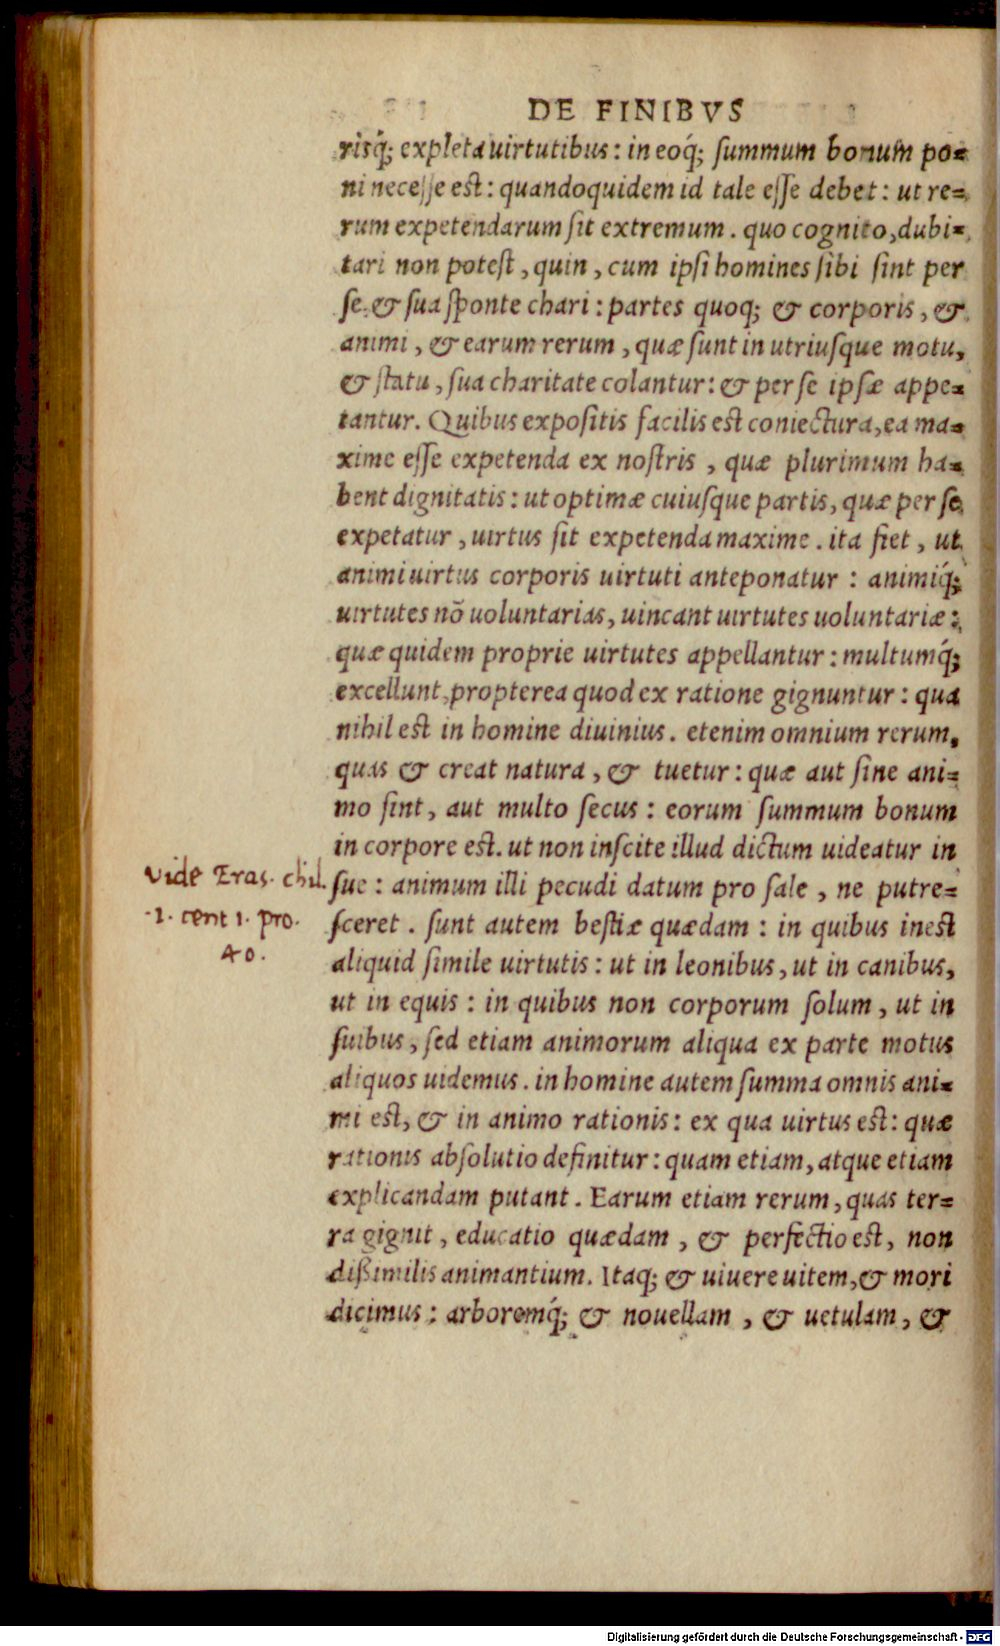 DE FINIBVS
risq́; expleta uirtutibus: in eoq́; ſummum bonum po-
ni neceſſe est: quandoquidem id tale eſſe debet: ut re-
rum expetendarum ſit extremum. quo cognito, dubi-
tari non poteſt, quin, cum ipſi homines ſibi ſint per
ſe, & ſua ſponte chari: partes quoq; & corporis, &
animi, & earum rerum, quæ ſunt in utriuſque motu,
& ſtatu, ſua charitate colantur: & per ſe ipſæ appe-
tantur. Quibus expoſitis facilis est coniectura, ea ma-
xime eſſe expetenda ex noſtris, quæ plurimum ha-
bent dignitatis: ut optimæ cuiuſque partis, quæ per ſe
expetatur, uirtus ſit expetenda maxime. ita fiet, ut
animi uirtus corporis uirtuti anteponatur: animiq́;
uirtutes nō uoluntarias, uincant uirtutes uoluntariæ:
quæ quidem proprie uirtutes appellantur: multumq́;
excellunt, propterea quod ex ratione gignuntur: qua
nihil est in homine diuinius. etenim omnium rerum,
quas & creat natura, & tuetur: quæ aut ſine ani-
mo ſint, aut multo ſecus: eorum ſummum bonum
in corpore est. ut non inſcite illud dictum uideatur in
ſue: animum illi pecudi datum pro ſale, ne putre-
ſceret. ſunt autem beſtiæ quædam: in quibus inest
aliquid ſimile uirtutis: ut in leonibus, ut in canibus,
ut in equis: in quibus non corporum ſolum, ut in
ſuibus, ſed etiam animorum aliqua ex parte motus
aliquos uidemus. in homine autem ſumma omnis ani-
mi est, & in animo rationis: ex qua uirtus est: quæ
rationis abſolutio definitur: quam etiam, atque etiam
explicandam putant. Earum etiam rerum, quas ter-
ra gignit, educatio quædam, & perfectio est, non
dißimilis animantium. Itaq; & uiuere uitem, & mori
dicimus: arboremq́; & nouellam, & uetulam, &
vide Eras. chil.
.1. cent 1. pro.
40.
Digitalisierung gefördert durch die Deutsche Forschungsgemeinschaft - DFG